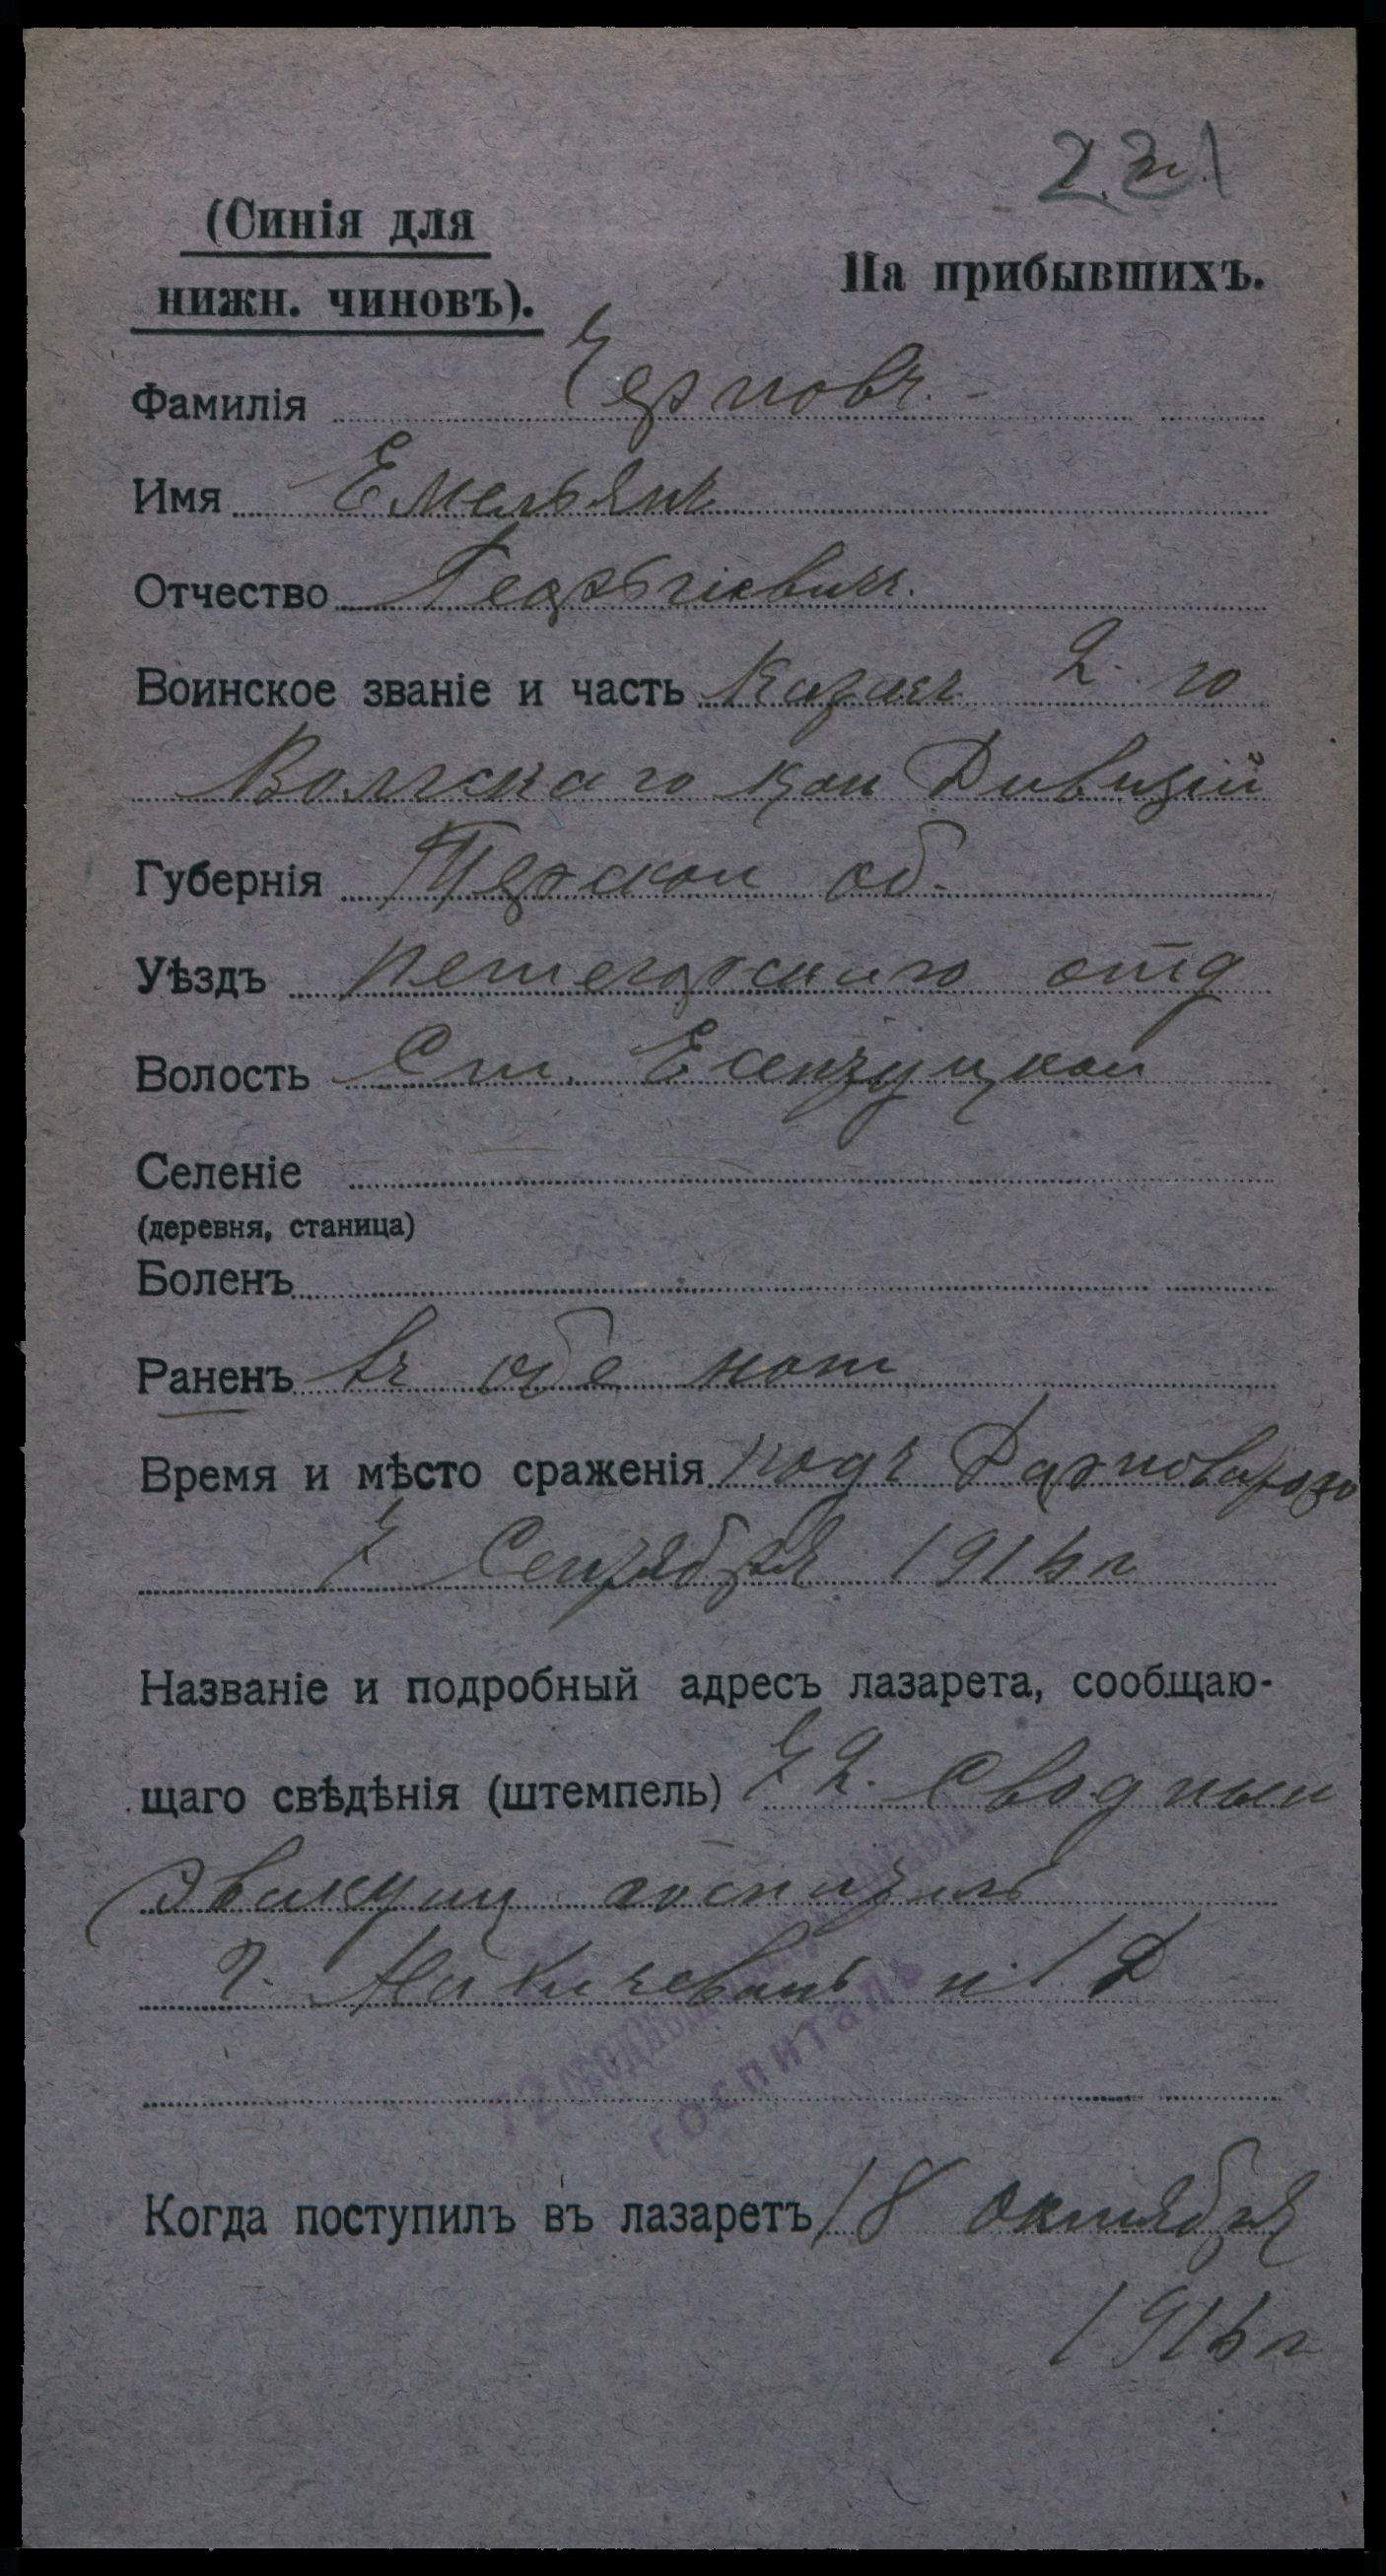 2. 
(Синія для
На прибывшихъ.
нижн. чиновъ).
Фамилія Черновъ.
Имя Емельянъ
Отчество Георьгіевичъ.
Воинское званіе и часть Казакъ 2-го
Волгскаго кон Дивизіи
Губернія Терской об.
Уѣздъ петегорскиго отд
Волость Ст. Есентуцкой
Селеніе
(деревня, станица)
Боленъ
Раненъ въ обе ноги
Время и мѣсто сраженія подъ
7 Сентября 1916 г
Названіе и подробный адресъ лазарета, сообщаю-
щаго свѣдѣнія (штемпель) 72. Сводный
Эвакуац госпиталь
г. Нахичевань н/Д
72 СВОДНЫЙ
ГОСПИТАЛЬ
Когда поступилъ въ лазаретъ 18 октября
1916 г